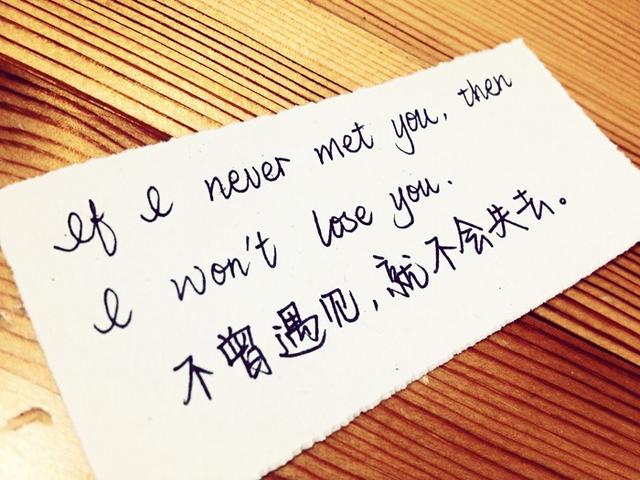 If I never met you, then
I won't lose you.
不曾遇见,就不会失去。